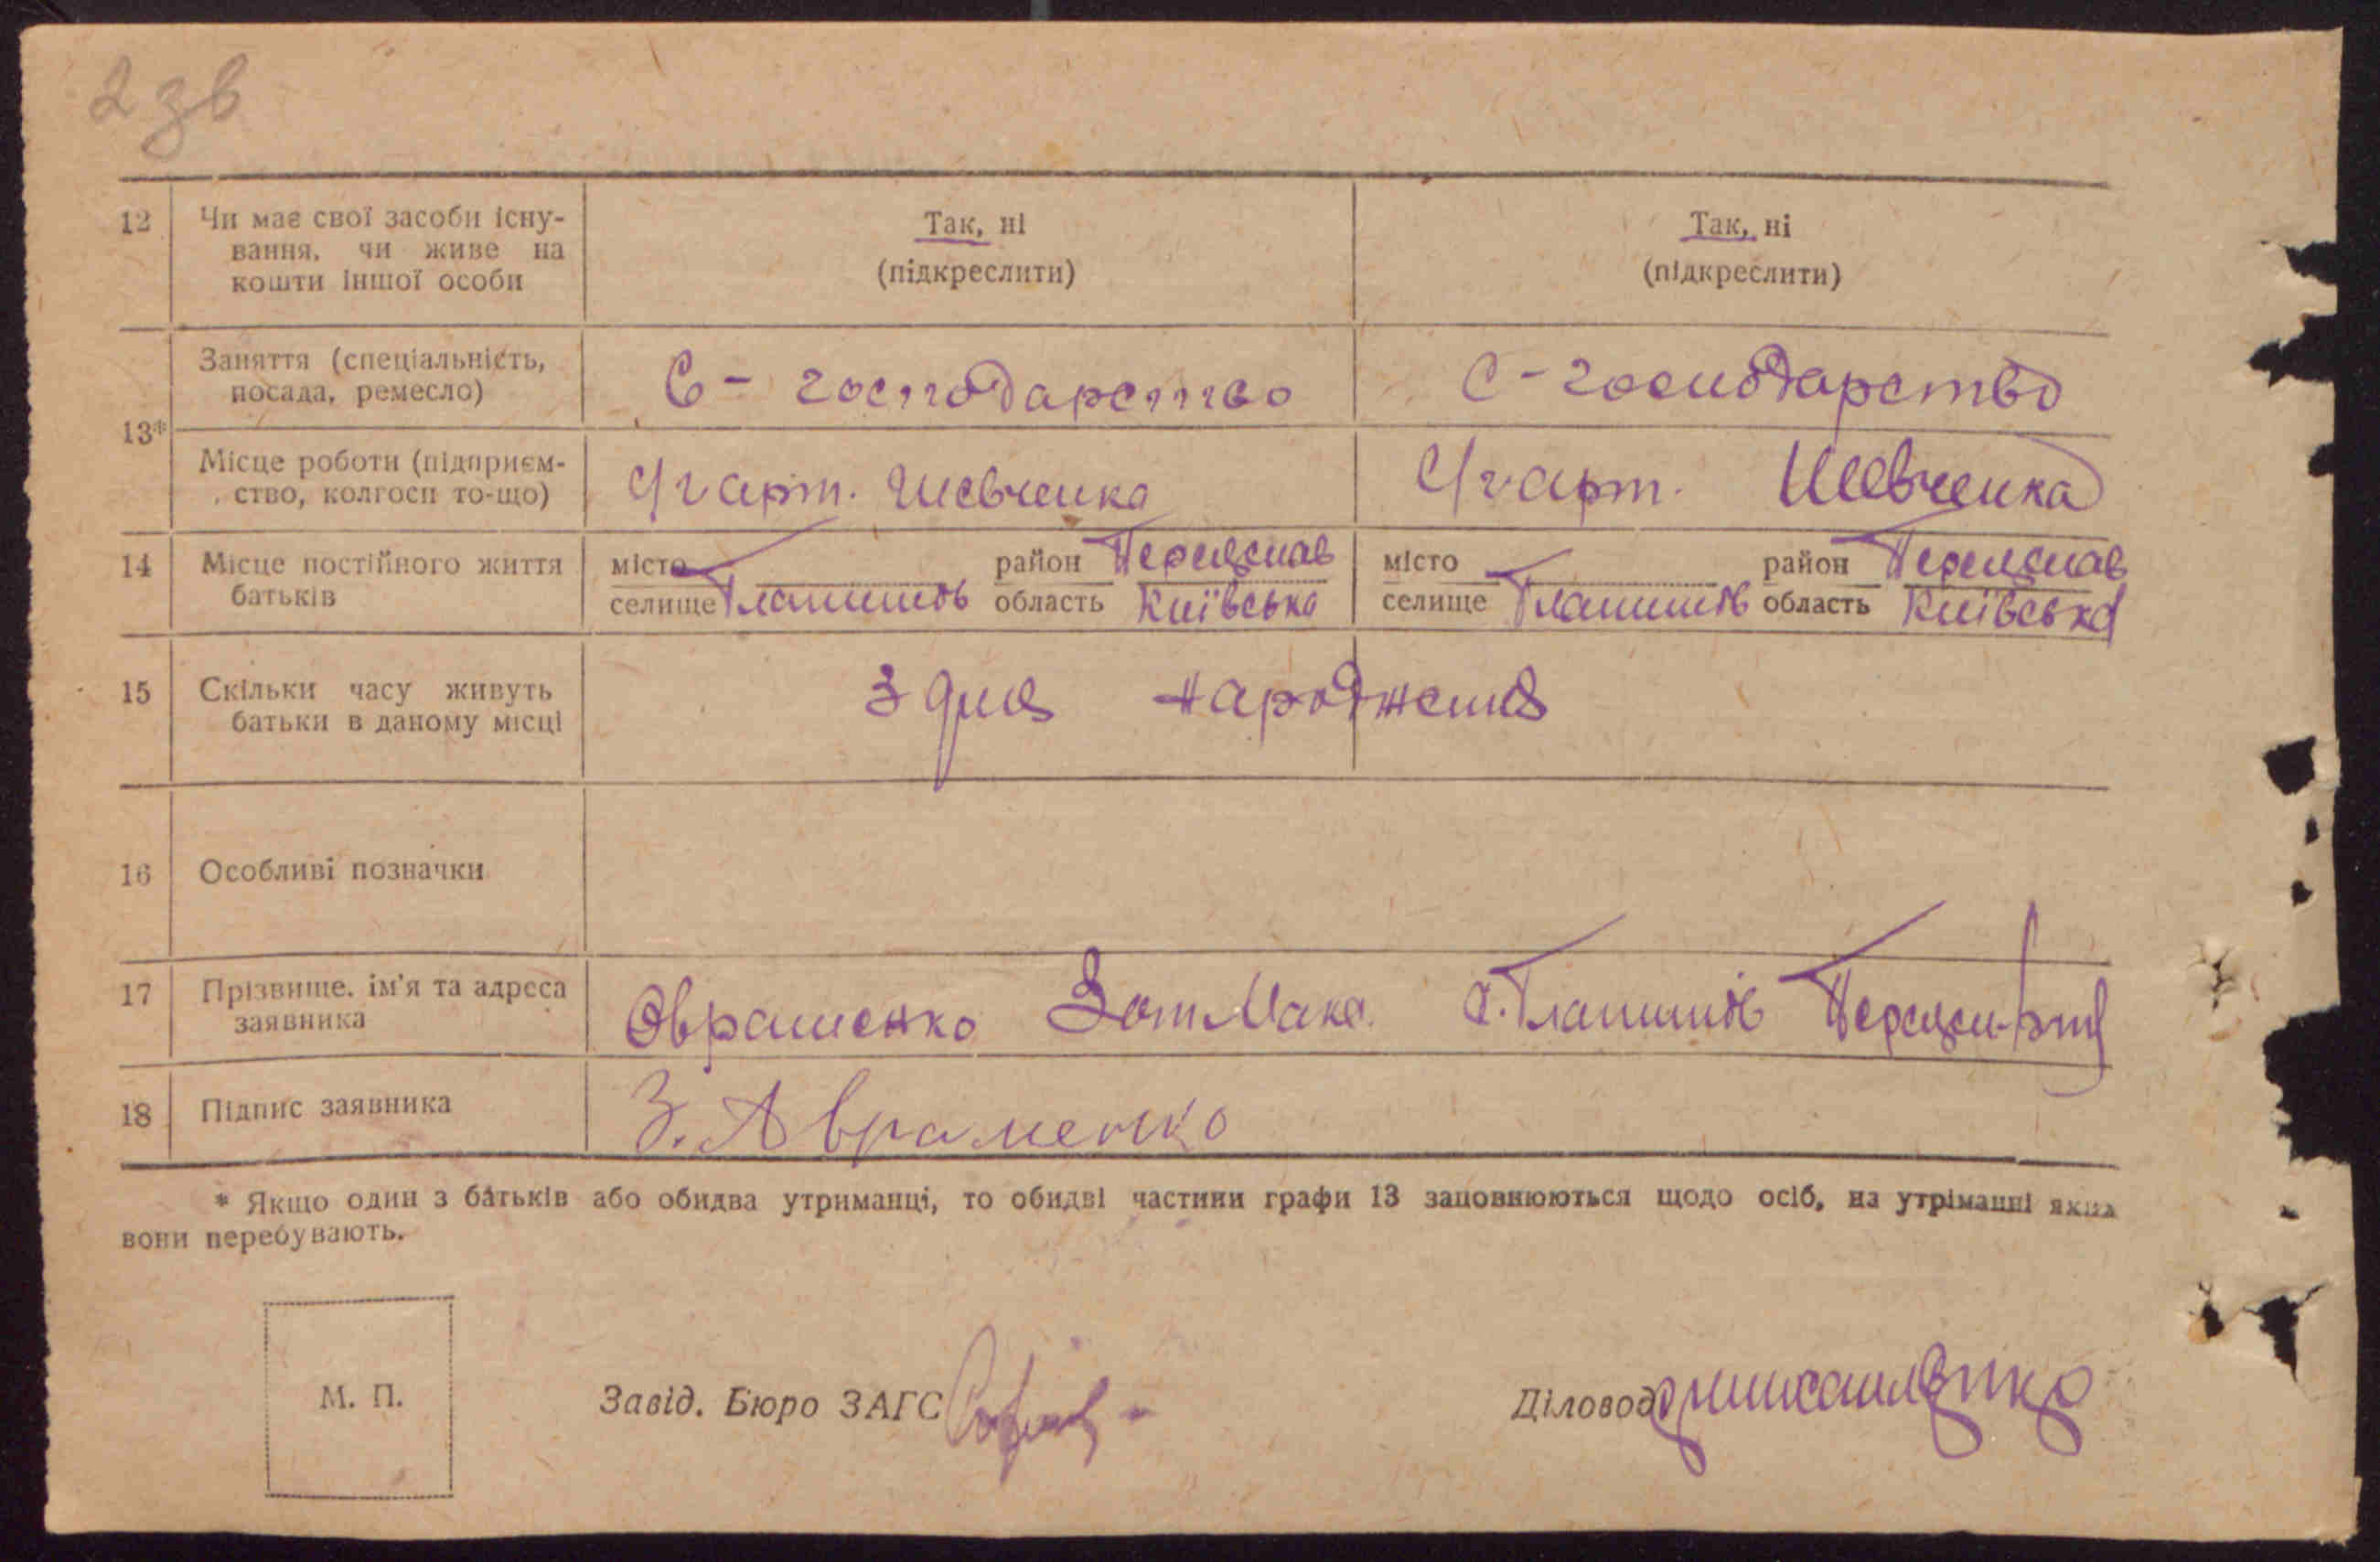 2 зв
12 Чи має свої засоби існу-
вання, чи живе на
кошти іншої особи
Так, ні
(підкреслити)
Так, ні
(підкреслити)
13*
Заняття (спеціальність,
посада, ремесло)
С - господарство
С - господарство
Місце роботи (підприєм-
ство, колгосп то-що)
С/г арт. Шевченка
С/г арт. Шевченка
14 Місце постійного життя
батьків
місто район Переяслав
селище Гланишів область Київська
місто район Переяслав
селище Гланишів область Київська
15 Скільки часу живуть
батьки в даному місці
З дня народження
16 Особливі позначки
17 Прізвище, ім'я та адреса
заявника
Авраменко Зот Мак. с. Гланишів
18 Підпис заявника
З. Авраменко
* Якщо один з батьків або обидва утриманці, то обидві частини графи 13 заповнюються щодо осіб, на утріманні яких
вони перебувають.
М. П.
Завід. Бюро ЗАГС
Діловод